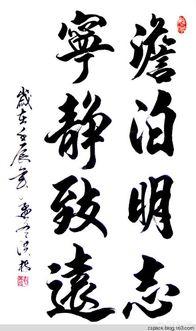 澹泊明志
寧靜致遠
歲在壬辰
zspack.blog.163.com